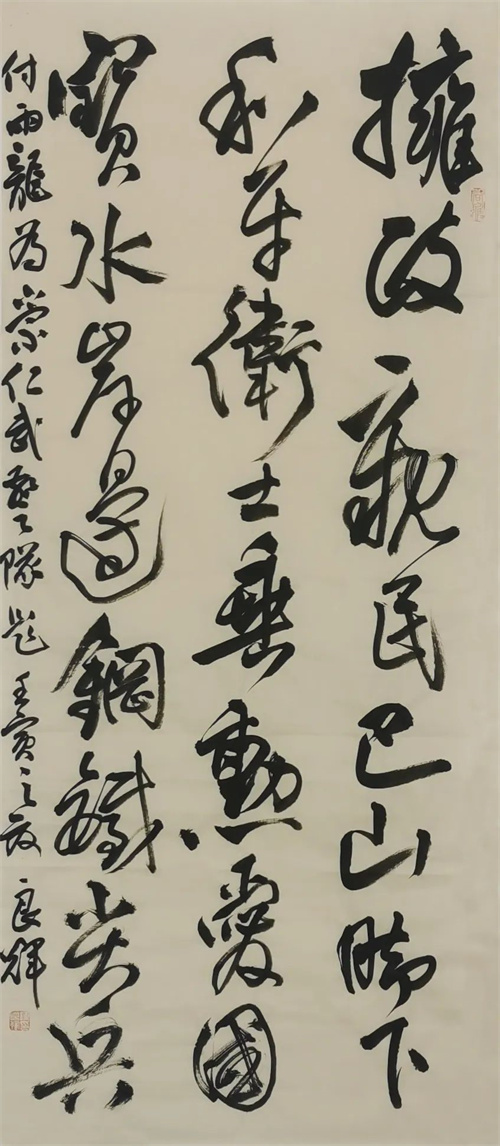 擁政親民巴山腳下
和平衛士垂勳愛國
寶水岸邊鋼鐵尖兵
付雨龍為崇仁武警隊題壬寅之良輝